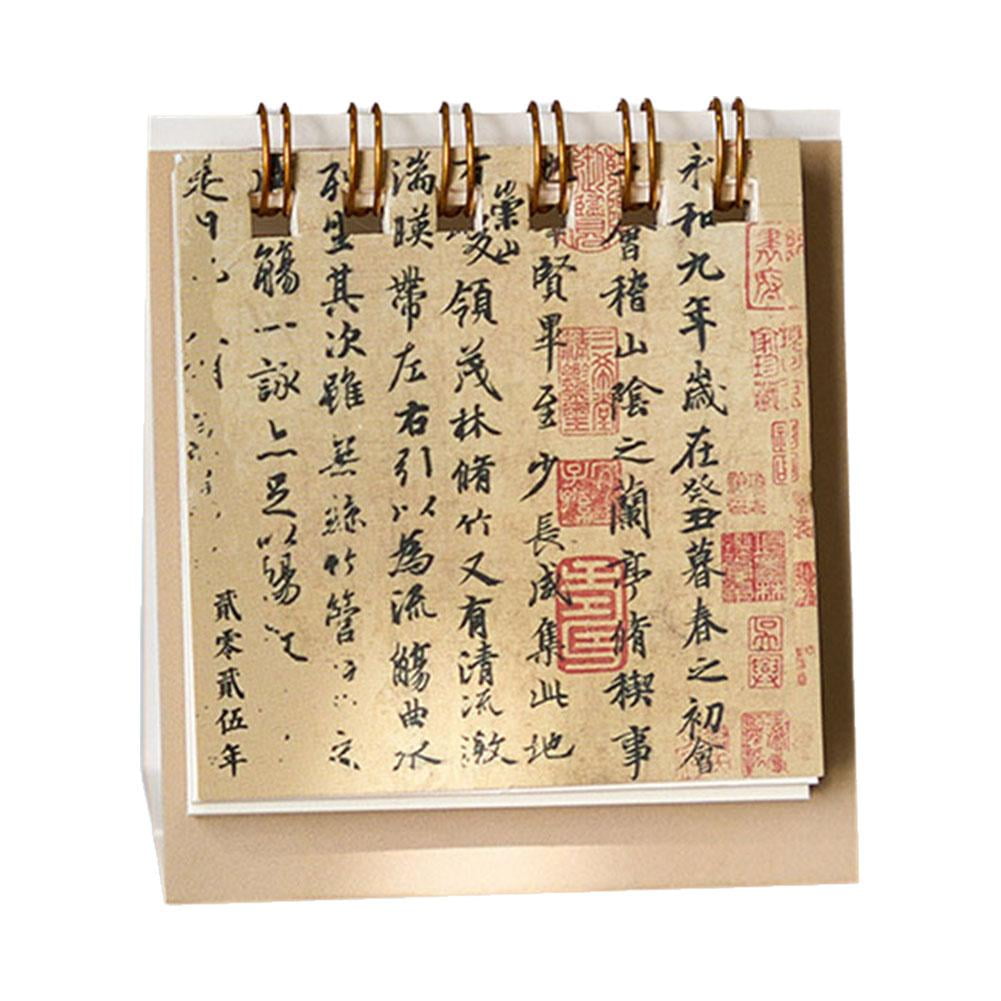 永和九年歲在癸丑暮春之初會
會稽山陰之蘭亭脩禊事
也羣賢畢至少長咸集此地
有崇山峻領茂林脩竹又有清流激
湍暎帶左右引以為流觴曲水
列坐其次雖無絲竹管
觴一詠亦足以暢
是日
貳零貳伍年
三希堂精鑑璽
宜子孫